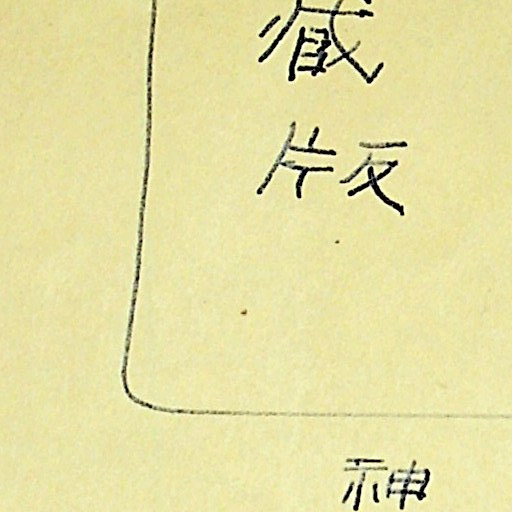 藏
版
神